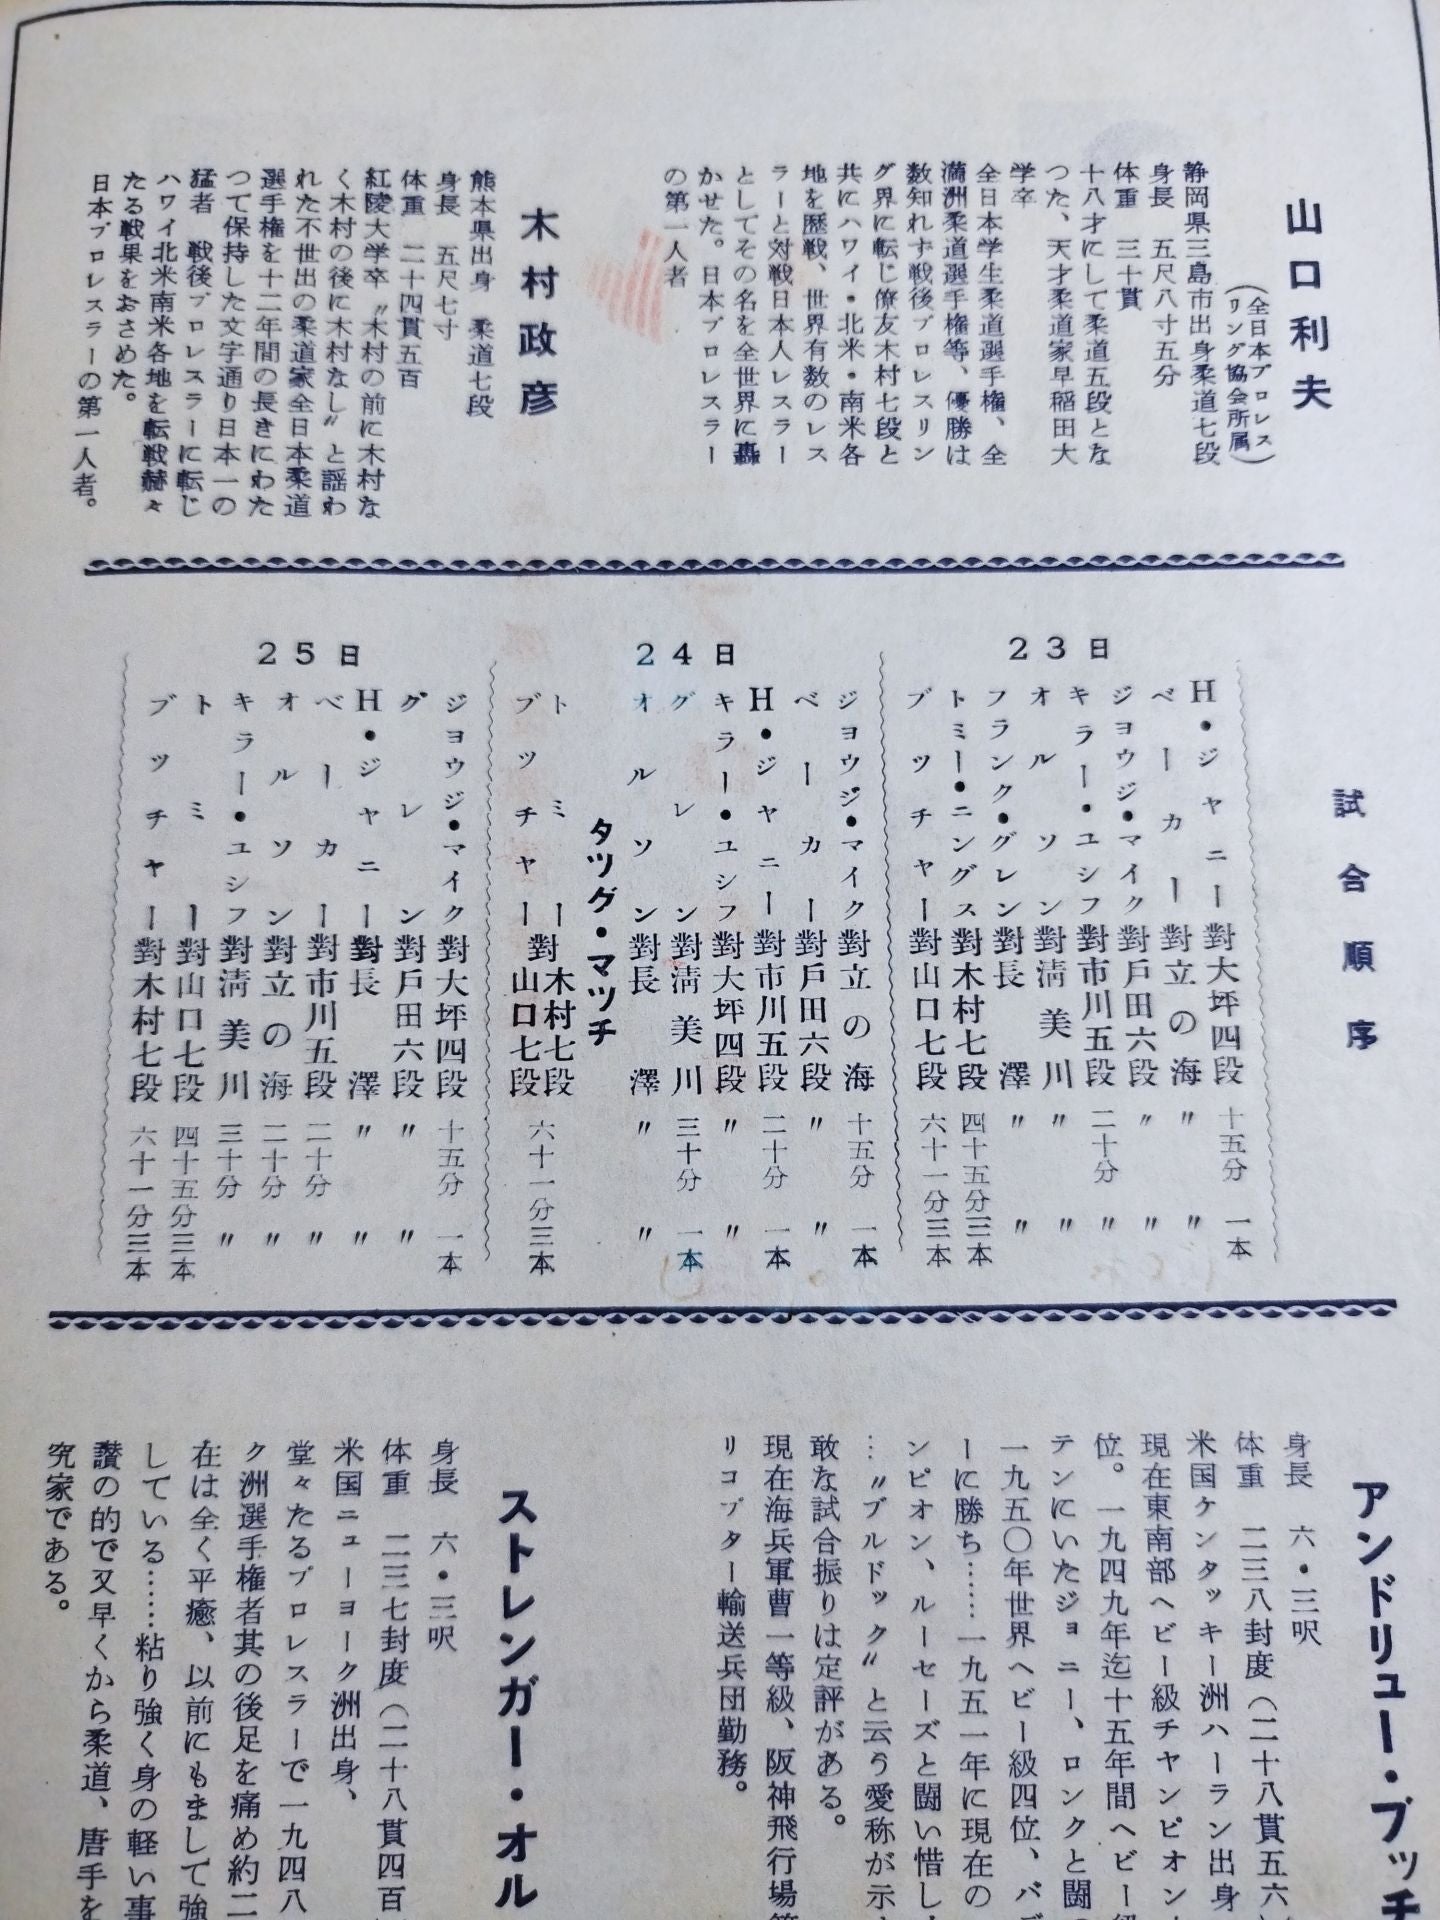 山口利夫
(全日本プロレス
リング協会所属)
静岡県三島市出身柔道七段
身長 五尺八寸五分
体重 三十貫
十八才にして柔道五段とな
つた、天才柔道家早稲田大
学卒
全日本学生柔道選手権、全
満洲柔道選手権等、優勝は
数知れず戦後プロレスリン
グ界に転じ僚友木村七段と
共にハワイ・北米・南米各
地を歴戦、世界有数のレス
ラーと対戦日本人レスラー
としてその名を全世界に轟
かせた。日本プロレスラー
の第一人者
木村政彦
熊本県出身 柔道七段
身長 五尺七寸
体重 二十四貫五百
紅陵大学卒〝木村の前に木村な
く木村の後に木村なし〟と謡わ
れた不世出の柔道家全日本柔道
選手権を十二年間の長きにわた
つて保持した文字通り日本一の
猛者 戦後プロレスラーに転じ
ハワイ北米南米各地を転戦赫々
たる戦果をおさめた。
日本プロレスラーの第一人者。
試合順序
23日
H・ジヤニー對大坪四段 十五分 一本
ベーカー對立の海 〃 〃
ジヨウジ・マイク對戸田六段 〃 〃
キラー・ユシフ對市川五段 二十分 〃
オルソン對淸美川 〃 〃
フランク・グレン對長澤 〃 〃
トミー・ニングス對木村七段 四十五分三本
ブツチヤー對山口七段 六十一分三本
24日
ジヨウジ・マイク對立の海 十五分 一本
ベーカー對戸田六段 〃 〃
H・ジヤニー對市川五段 二十分 一本
キラー・ユシフ對大坪四段 〃 〃
グレン對淸美川 三十分 一本
オルソン對長澤 〃 〃
タツグ・マツチ
トミー 木村七段
ブツチヤー對山口七段 六十一分三本
25日
ジヨウジ・マイク對大坪四段 十五分 一本
グレン對戸田六段 〃 〃
H・ジヤニー對長澤 〃 〃
ベーカー對市川五段 二十分 〃
オルソン對立の海 二十分 〃
キラー・ユシフ對淸美川 三十分 〃
トミー對山口七段 四十五分三本
ブツチヤー對木村七段 六十一分三本
アンドリュー・ブッチ
身長 六・三呎
体重 二三八封度(二十八貫五六
米国ケンタッキー洲ハーラン出身
現在東南部ヘビー級チヤンピオン
位。一九四九年迄十五年間ヘビー
テンにいたジョニー、ロンクと闘
一九五〇年世界ヘビー級四位、バ
ーに勝ち……一九五一年に現在の
ンピオン、ルーセーズと闘い惜し
…〝ブルドック〟と云う愛称が示
敢な試合振りは定評がある。
現在海兵軍曹一等級、阪神飛行場
リコプター輸送兵団勤務。
ストレンガー・オル
身長 六・三呎
体重 二三七封度(二十八貫四百
米国ニューヨーク洲出身、
堂々たるプロレスラーで一九四八
ク洲選手権者其の後足を痛め約二
在は全く平癒、以前にもまして強
している……粘り強く身の軽い事
讃の的で又早くから柔道、唐手を
究家である。